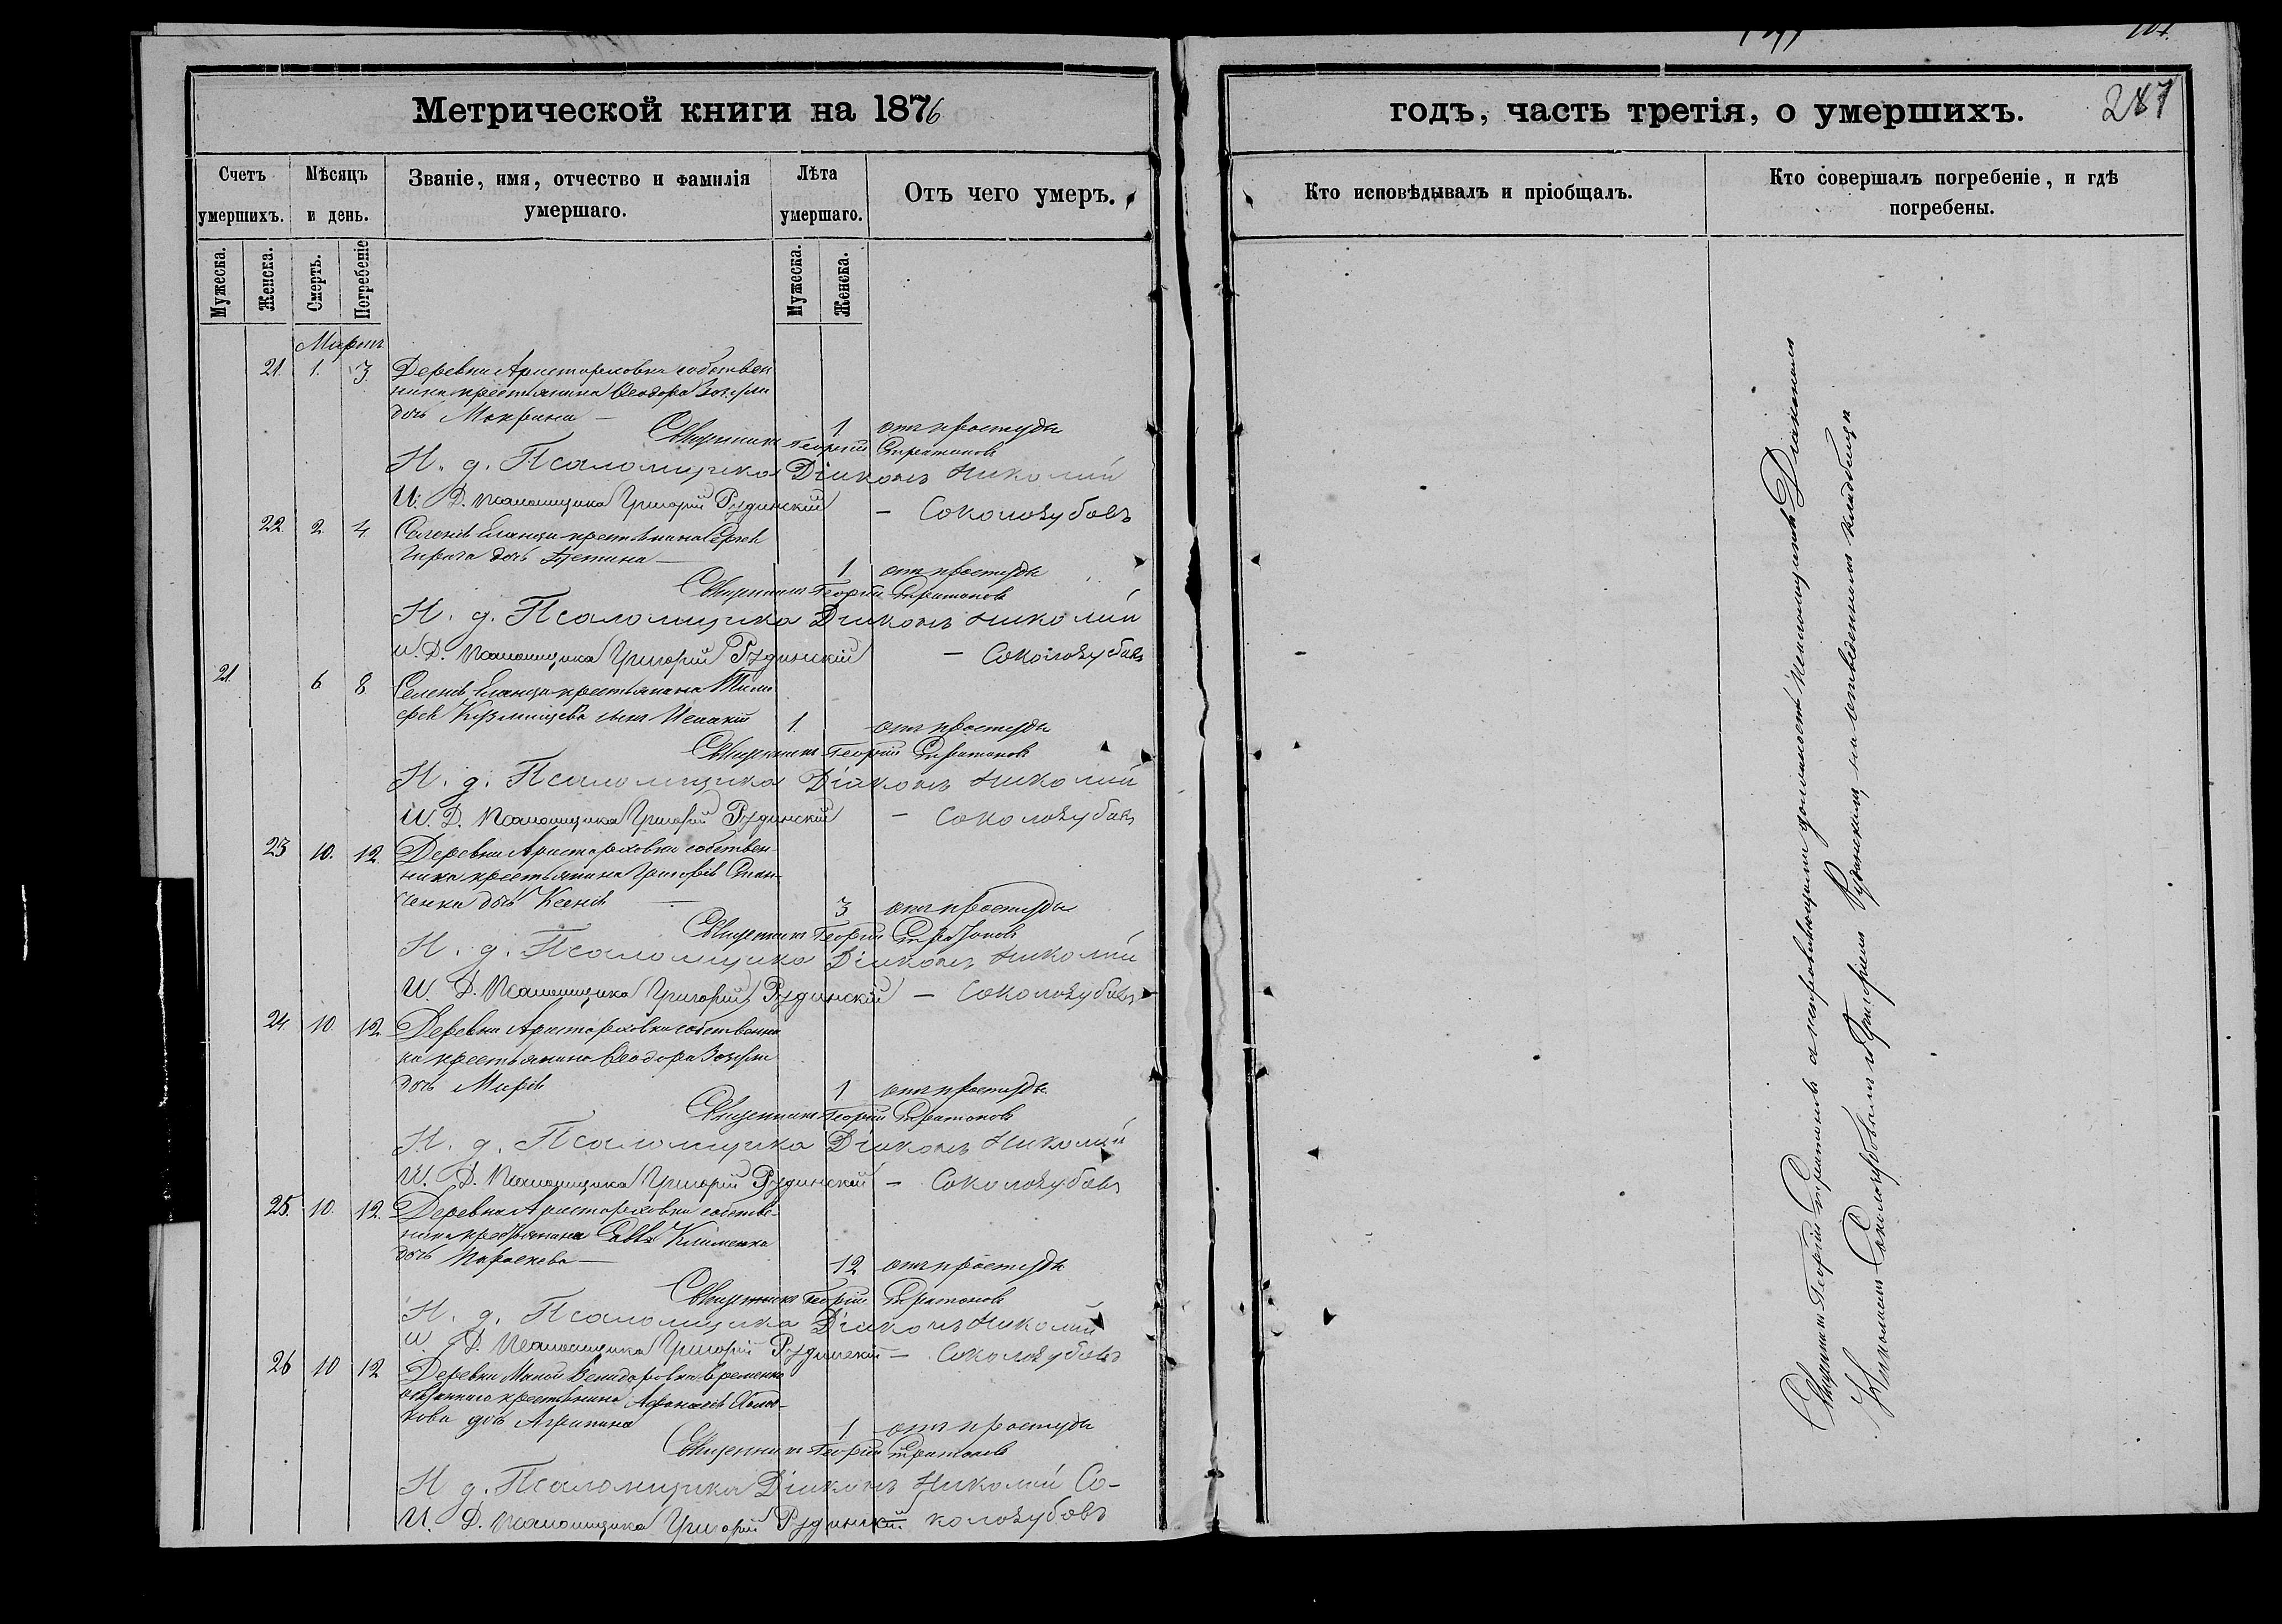 Метрической книги на 1876
Счетъ умершихъ.
Мѣсяцъ и день.
Званіе, имя, отчество и фамилія умершаго.
Лѣта умершаго.
Отъ чего умеръ.
Мужеска.
Женска.
Смерть.
Погребеніе
Мужеска.
Женска.
Мартъ
21. 1. 3 Деревни Аристарховки собствен
ника крестьянина Ѳеодора
дочь Макрина — 1 отъ простуды
Священникъ Георгій Стратоновъ
И. д. Псаломщика Діаконъ Николай
И. Д. Псаломщика Григорій Рудинскій — Соколозубовъ
22. 2. 4. Селенія Еланца крестьянина Сергѣя
дочь 1 отъ простуды
Священникъ Георгій Стратоновъ
И. д. Псаломщика Діаконъ Николай
И. Д. Псаломщика Григорій Рудинскій — Соколозубовъ
21. 6 8 Селенія Еланца крестьянина Тимо
фея сынъ Исаакій 1. отъ простуды
Священникъ Георгій Стратоновъ
И. д. Псаломщика Діаконъ Николай
И. Д. Псаломщика Григорій Рудинскій — Соколозубовъ
23 10. 12. Деревни Аристарховки собствен
ника крестьянина Григорія
дочь Ксенія — 3 отъ простуды
Священникъ Георгій Стратоновъ
И. д. Псаломщика Діаконъ Николай
И. Д. Псаломщика Григорій Рудинскій — Соколозубовъ
24 10. 12. Деревни Аристарховки собственни
ка крестьянина Ѳеодора
дочь Марія 1 отъ простуды
Священникъ Георгій Стратоновъ
И. д. Псаломщика Діаконъ Николай
И. Д. Псаломщика Григорій Рудинскій — Соколозубовъ
25. 10. 12. Деревни Аристарховки собстве-
ника крестьянина Саввы Клименка
дочь Параскева — 12 отъ простуды
Священникъ Георгій Стратоновъ
И. д. Псаломщика Діаконъ Николай
И. Д. Псаломщика Григорій Рудинскій — Соколозубовъ
26 10 12 Деревни временно
обязаннаго крестьянина Афанасія
кова дочь Агрипина 1 отъ простуды
Священникъ Георгій Стратоновъ
И д. Псаломщика Діаконъ Николай Со-
И. Д. Псаломщика Григорій Рудинскій колозубовъ
годъ, часть третія, о умершихъ.
287
Кто исповѣдывалъ и пріобщалъ.
Кто совершалъ погребеніе, и гдѣ погребены.
Священникъ Георгій Стратоновъ съ исправляющими должность Псаломщика Діакономъ
Николаемъ Соколозубовымъ и Григоріемъ Рудинскимъ, на отведенномъ кладбищѣ